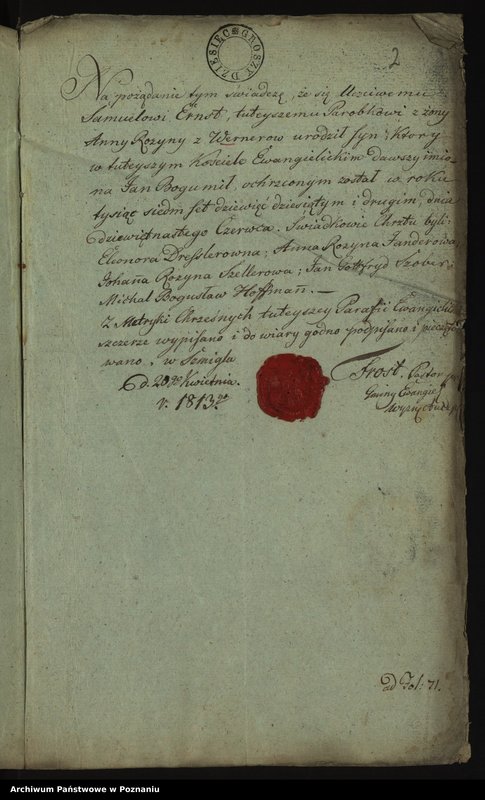 DZIESIĘĆ GROSZY
2
Na pożądanie tym świadczę, że się Uczciwemu
Samuelowi Ernst, tuteyszemu Parobkowi z żony
Anny Rozyny z Wernerow urodził syn, ktory
w tuteyszym Kościele Ewangielickim dawszy imio-
na Jan Bogumił, ochrzconym został w roku
tysiąc siedm set dziewięć dziesiątym i drugim, dnia
dziewiętnastego Czerwca. Swiadkowie Chrztu byli:
Eleonora Dresslerowna; Anna Rozyna Janderowa,
Johańa Rozyna Szellerowa; Jan Gottfryd Szober;
Michał Bogusław Hoffmań. —
Z Metryki Chrzesnych tuteyszey Parafii Ewangielic
szczerze wypisano i do wiary godno podpisano i pieczęto
wano, w Szmiglu
d. 20go Kwietnia.
r. 1813go
Frost. Pastor
Gminy Ewangie
ad Fol: 71.
Archiwum Państwowe w Poznaniu